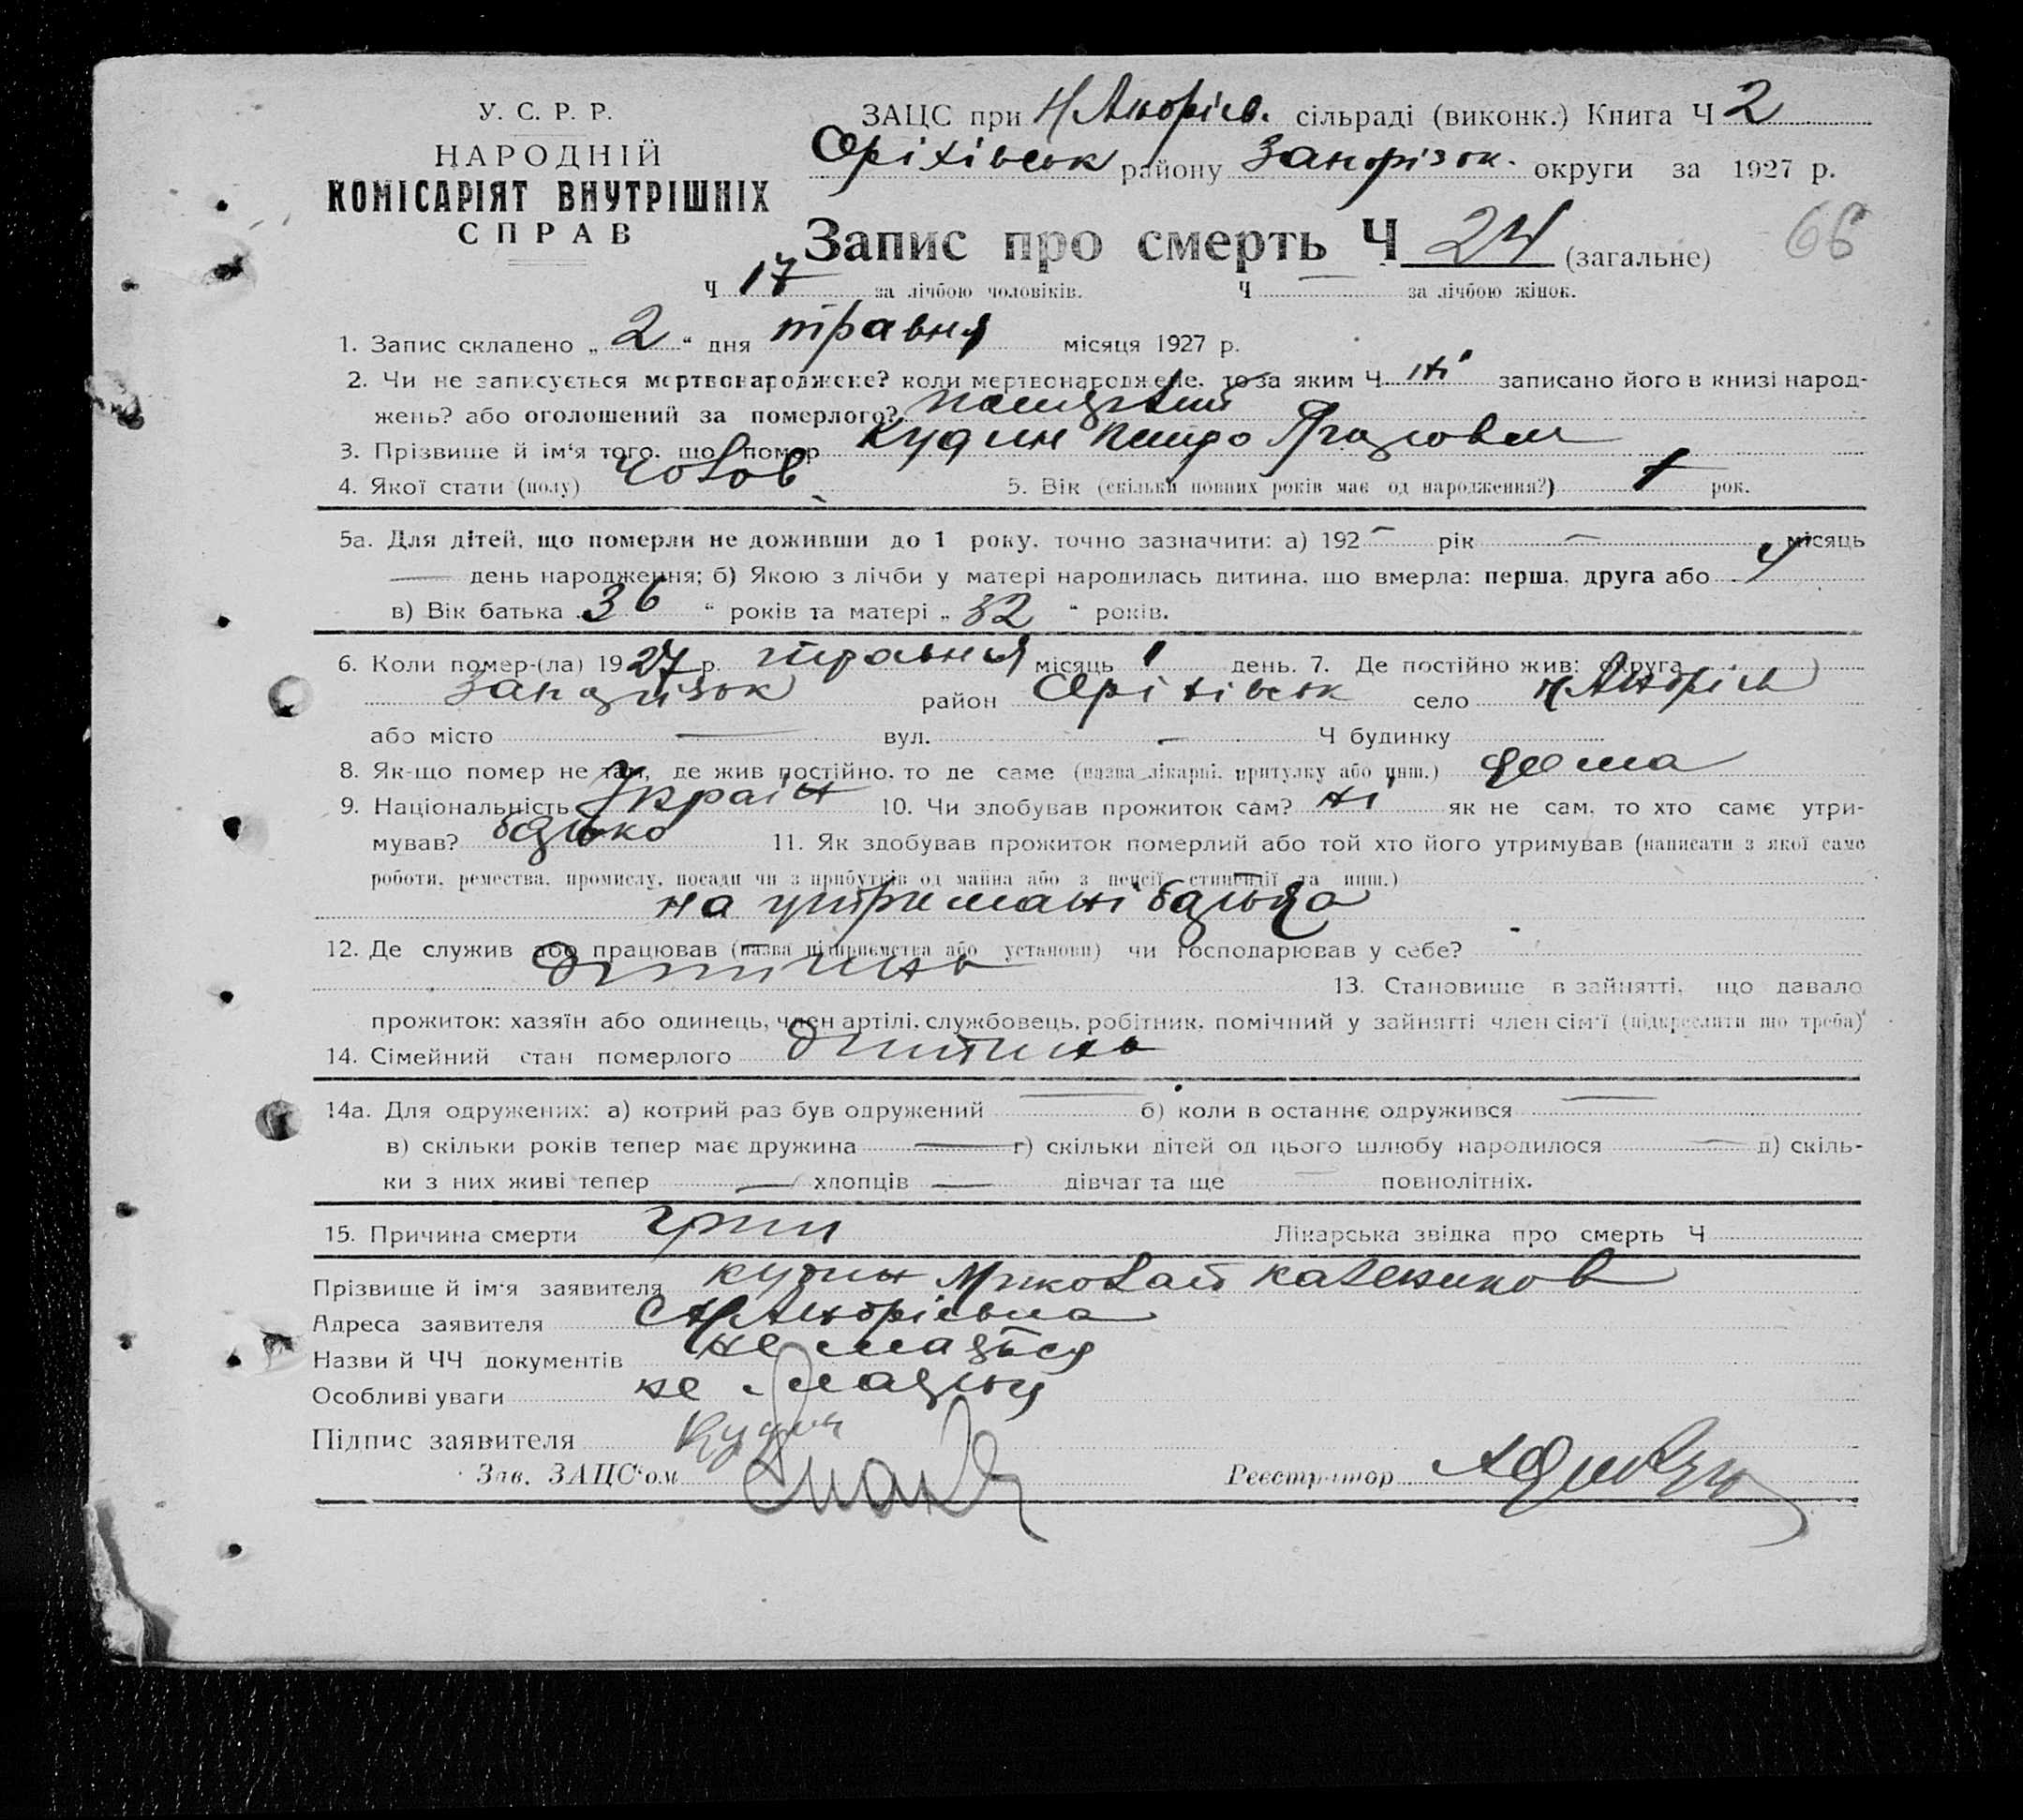 У. С. Р. Р.
НАРОДНІЙ
КОМІСАРІЯТ ВНУТРІШНІХ
СПРАВ
ЗАЦС при Н Андріїв. сільраді (виконк.) Книга Ч 2
Оріхівськ району Запоріз ок. округи за 1927 р.
Запис про смерть Ч 24 (загальне) 66
Ч 17 за лічбою чоловіків. Ч — за лічбою жінок.
1. Запис складено „ 2 “ дня травня місяця 1927 р.
2. Чи не записується мертвонароджене? коли мертвонароджене, то за яким Ч ні записано його в книзі народ-
жень? або оголошений за померлого?
3. Прізвище й ім‘я того, що помер Кудин Петро
4. Якої стати (полу) чолов. 5. Вік (скільки повних років має од народження?) 1 рок.
5а. Для дітей, що померли не доживши до 1 року, точно зазначити: а) 192 — рік — місяць
— день народження; б) Якою з лічби у матері народилась дитина, що вмерла: перша, друга або 4
в) Вік батька 36 “ років та матері „ 32 “ років.
6. Коли помер-(ла) 1927 р. травня місяць 1 день. 7. Де постійно жив: округа
Запоріз ок район Оріхівськ село Н Андріїв
або місто — вул. — Ч будинку
8. Як-що помер не там, де жив постійно, то де саме (назва лікарні, притулку або инш.) дома
9. Національність Україн 10. Чи здобував прожиток сам? ні як не сам, то хто саме утри-
мував? батько 11. Як здобував прожиток померлий або той хто його утримував (написати з якої само
роботи, ремества, промислу, посади чи з прибутків од майна або з пенсії, стипендії та инш.)
на утримані батька
12. Де служив або працював (назва підприємства або установи) чи господарював у себе?
дитина 13. Становище в зайнятті, що давало
прожиток: хазяїн або одинець, член артілі, службовець, робітник, помічний у зайнятті член сім‘ї (підкреслити що треба)
14. Сімейний стан померлого дитина
14а. Для одружених: а) котрий раз був одружений — б) коли в останнє одружився —
в) скільки років тепер має дружина — г) скільки дітей од цього шлюбу народилося — д) скіль-
ки з них живі тепер — хлопців — дівчат та ще — повнолітніх.
15. Причина смерти грип Лікарська звідка про смерть Ч
Прізвище й ім‘я заявителя Кудин Миколай Каленików
Адреса заявителя с Н Андріївка
Назви й ЧЧ документів не мається
Особливі уваги не мается
Підпис заявителя Кудин
Зав. ЗАЦС‘ом
Реєстратор